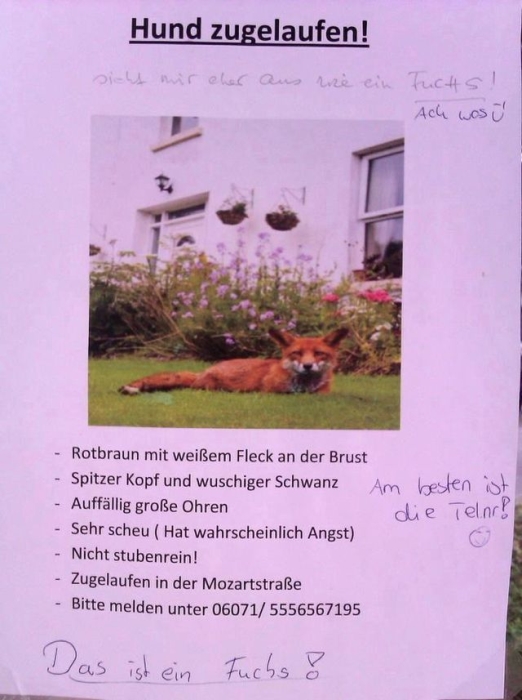 Hund zugelaufen!
sieht mir eher aus wie ein Fuchs!
Ach wos
- Rotbraun mit weißem Fleck an der Brust
- Spitzer Kopf und wuschiger Schwanz
- Auffällig große Ohren
- Sehr scheu ( Hat wahrscheinlich Angst)
- Nicht stubenrein!
- Zugelaufen in der Mozartstraße
- Bitte melden unter 06071/ 5556567195
Am besten ist
die Telnr!
Das ist ein Fuchs!